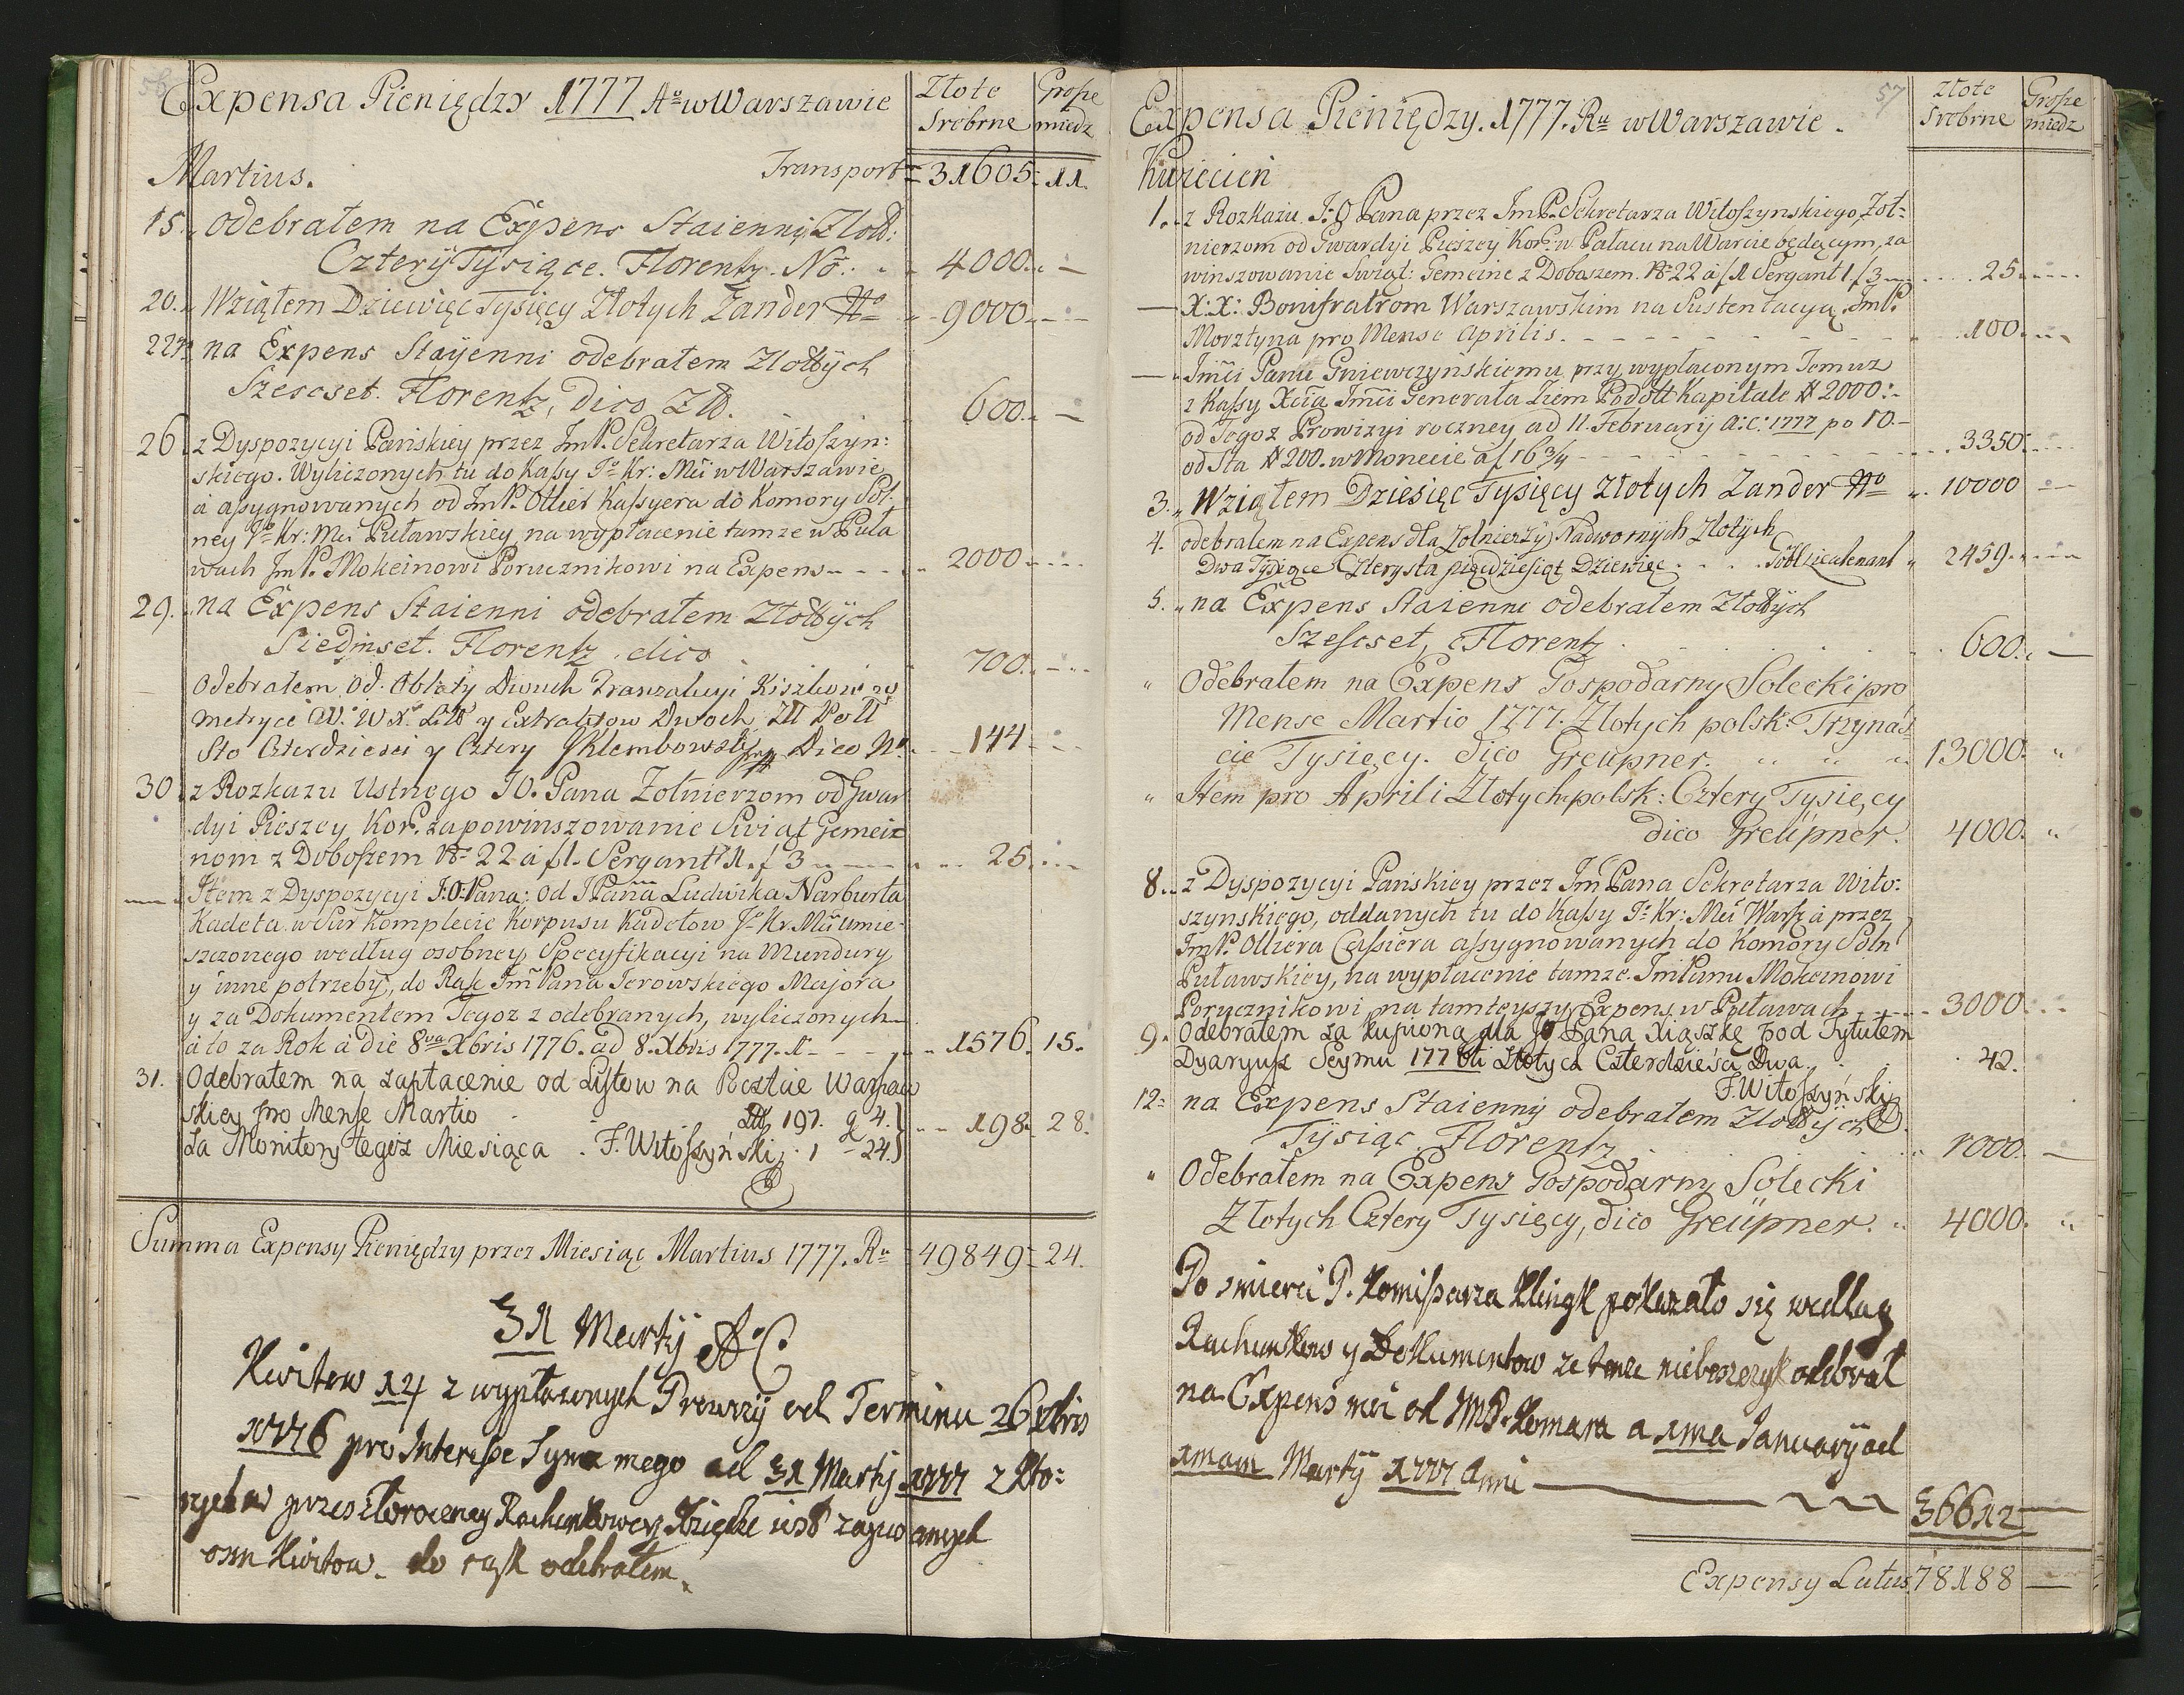 56
Expensa Pieniędzy 1777 Aº w Warszawie
Złote Grosze
Srebrne miedz
Martius.
Transport = 31605 = 11.
15. Odebrałem na Expens Staienny Złott:
Cztery Tysiące. Florentz. Nō. 4000. —
20. Wziąłem Dziewięc Tysięcy Złotych Zander Nº 9000. —
22. na Expens Stayenni odebrałem Złottÿch
Szescset. Florentz, dico Zlt. 600. —
26. z Dyspozycyi Pańskiey przez JmP. Sekretarza Witoszyn:
skiego. Wyliczonych tu do Kassy Jº Kr: Mći w Warszawie
á assygnowanych od JmP. Ollier Kassyera do Komory Sol:
ney Jº Kr: Mći Puławskiey na wypłacenie tamze w Puła
wach JmP. Mokeinowi Porucznikowi na Expens - - - 2000
29. na Expens Staienni odebrałem Złottÿch
Siedmset. Florentz. dico 700.
Odebrałem od Oblaty Dwuch Tranzakcyi
Metryce W. W. X. Litt y Extraktow Dwoch Zll Poll
Sto Czterdziesci y Cztery JKlembowski Dico Nº. 144
30. z Rozkazu Ustnego JO. Pana Zołnierzom od Gwar
dyi Pieszey Kor. za powinszowanie Swiąt Gemein
nom z Doboszem Nº 22 á f 1. Sergant 1. f 3 25.
Item z Dyspozycyi J:O: Pana: od JPana Ludwika Narbutta
Kadeta w Sur Komplecie Korpusu Kadetow Jº Kr. Mći umie-
szczonego według osobney Specyfikacyi na Mundury
y inne potrzeby, do Rąk Jm Pana Jerowskiego Majora
y za Dokumentem Tegoz z odebranych, wyliczonych
á to za Rok a die 8va Xbris 1776. ad 8. Xbris 1777. 1576. 15.
31. Odebrałem na zapłacenie od Listow na Poczcie Warszaw
skiey pro Mense Martio Złł 197. g 4. } 198. 28.
za Monitory tegoż Miesiąca. F. Witoszyński. 1 - 24. }
Summa Expensy Pieniędzy przez Miesiąc Martius 1777. Ru = 49849 = 24.
31 Martij A C
Kwitow 14 z wypłaconych Prowizij od Terminu 26 Xbris
1776 pro Interesse Syna mego ad 31 Martij 1777 z Kto:
rych w przeszłoroczney Rachunkowey Księdze iest zapisanych
osm Kwitow. do rąk odebrałem.
57
Expensa Pieniędzy. 1777. Ru w Warszawie.
Złote Grosze
Srebrne miedz
Kwiecień
1. z Rozkazu J:O Pana przez JmP. Sekretarza Witoszynskiego, Zoł-
nierzom od Gwardyi Pieszey Kor. w Pałacu na Warcie będącym, za
winszowanie Swiąt: Gemeine z Doboszem. Nº 22 á f 1 Sergant 1 f 3 25.
— X: X: Bonifratrom Warszawskim na Sustentacyą JmP.
Morztyna pro Mense Aprilis. - - - 100.
— Jmći Panu Gniewczyńskiemu przy wypłaconym Temuz
z Kassy Xcia Jmći Generała Ziem Podoll Kapitale # 2000:-
od Tegoz Prowizyi roczney ad 11. February a: c: 1777 po 10.-
od Sta # 200. w Monecie á f 16 3/4 - - - 3350.
3. Wziąłem Dziesięc Tysięcy Złotych Zander Nº 10000 —
4. odebrałem na Expens dla Zołnierzÿ Nadwornÿch Złotÿch
Dwa Tysiące Czterysta pięcdziesiąt Dziewięc. 2459.
5. na Expens Staienni odebrałem Złottÿch
Szescset, Florentz 600. —
" Odebrałem na Expens Gospodarny Solecki pro
Mense Martio 1777. Złotych polsk: Trzynas
cie Tysięcy. dico Greüpner. 13000. "
" Item pro Aprili Złotych polsk: Cztery Tysięcy
dico Greüpner. 4000. "
8. z Dyspozycyi Pańskiey przez Jm Pana Sekretarza Wito-
szynskiego, oddanych tu do Kassy Jº Kr: Mći Warsz á przez
JmP. Olliera Cassiera assygnowanych do Komory Soln
Puławskiey, na wypłacenie tamze. Jm Panu Mokeinowi
Porucznikowi na tamteyszy Expens w Puławach 3000.
9. Odebrałem za kupioną dla JO Pana Xiąszkę pod Tytułem
Dyaryusz Seymu 1776ti Złotych Czterdzieści Dwa 42.
F. Witoszyński
12. na Expens Staiennÿ odebrałem Złottÿch
Tÿsiąc. Florentz 1000. —
" Odebrałem na Expens Gospodarny Solecki
Złotych Cztery Tysięcy, dico Greüpner. 4000. "
Po smierci P. Komisarza Klingk pokazało się według
Rachunkow y Dokumentow ze tenze nieboszczyk odebrał
na Expens moi od JMP. Komara a 1ma Januarij ad
1mam Martij 1777 Anni — 36612 —
Expensy Latus 78188 —